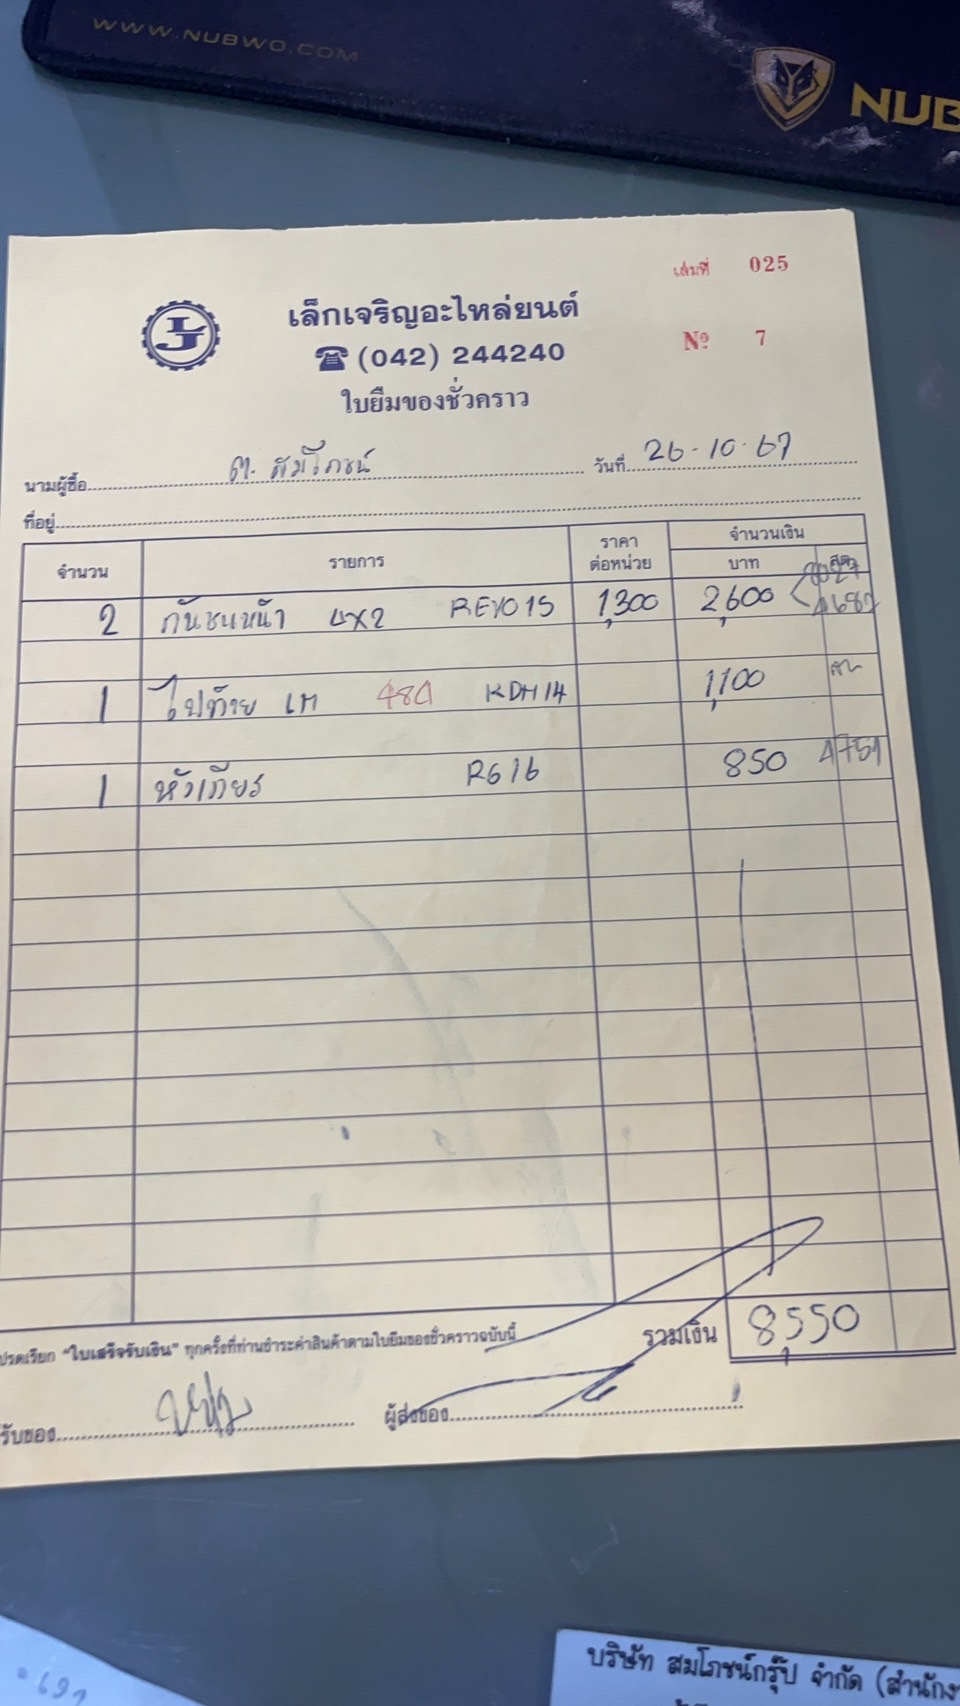 WWW.NUBWO.COM
NUB
เล่มที่ 025
เล็กเจริญอะไหล่ยนต์
Nº 7
LJ
☎ (042) 244240
ใบยืมของชั่วคราว
นามผู้ซื้อ ต. สมโภชน์ วันที่ 26-10-67
ที่อยู่
จำนวน รายการ ราคาต่อหน่วย จำนวนเงิน
บาท สต.
2 กันชนหน้า 4x2 REVO15 1,300 2,600 4682
1 ไฟท้าย LM 48A KDH14 1,100
1 หัวเกียร R616 850 4751
ปรดเรียก "ใบเสร็จรับเงิน" ทุกครั้งที่ท่านชำระค่าสินค้าตามใบยืมของชั่วคราวฉบับนี้ รวมเงิน 8,550
รับของ ผู้ส่งของ
บริษัท สมโภชน์กรุ๊ป จำกัด (สำนักง